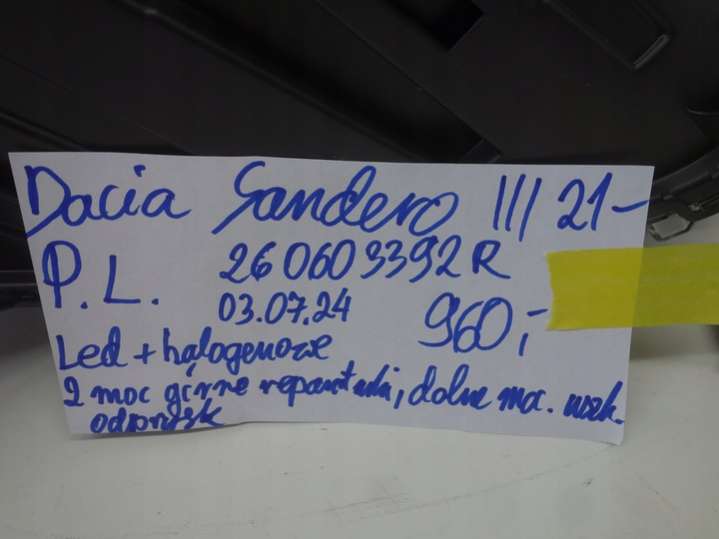 Dacia Sandero III 21-
P.L. 260603392R
03.07.24 960,-
Led + halogenowe
2 moc górne reparaturki, dolne moc. uszk.
odprysk